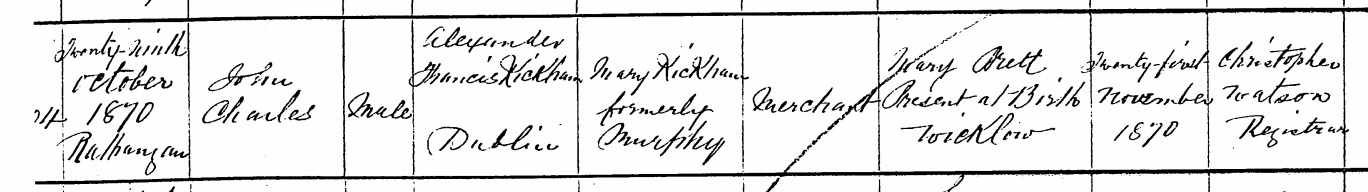 Twenty-ninth
October
1870
Rathangan
John
Charles
Male
Alexander
Francis Kickham
Dublin
Mary Kickham
formerly
Murphy
Merchant
Mary Brett
Present at Birth
Wicklow
Twenty-first
November
1870
Christopher
Watson
Registrar